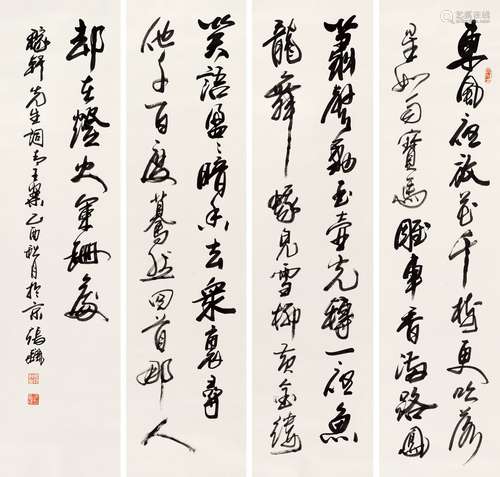 東風夜放花千樹更吹落
星如雨寶馬雕車香滿路鳳
簫聲動玉壺光轉一夜魚
龍舞蛾兒雪柳黃金縷
笑語盈〻暗香去衆裏尋
他千百度驀然回首那人
却在燈火闌珊處
稼軒先生詞青玉案乙酉秋月於京張